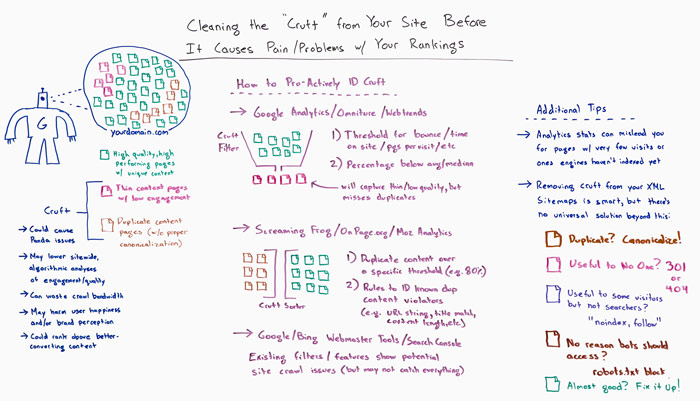 Cleaning the "Cruft" from Your Site Before
It Causes Pain/Problems w/ Your Rankings
G
yourdomain.com
High quality, high
performing pages
w/ unique content
Cruft
Thin content pages
w/ low engagement
Duplicate content
pages (w/o proper
canonicalization)
→ Could cause
Panda issues
→ May lower sitewide,
algorithmic analyses
of engagement/quality
→ Can waste crawl bandwidth
→ May harm user happiness
and/or brand perception
→ Could rank above better-
converting content
How to Pro-Actively ID Cruft
→ Google Analytics/Omniture/Webtrends
Cruft
Filter
1) Threshold for bounce/time
on site/pgs per visit/etc
2) Percentage below avg/median
will capture thin/low quality, but
misses duplicates
→ Screaming Frog/OnPage.org/Moz Analytics
Cruft Sorter
1) Duplicate content over
a specific threshold (e.g. 80%)
2) Rules to ID known dup
content violators
(e.g. URL string, title match,
content length, etc)
→ Google/Bing Webmaster Tools/Search Console
Existing filters/features show potential
site crawl issues (but may not catch everything)
Additional Tips
→ Analytics stats can mislead you
for pages w/ very few visits or
ones engines haven't indexed yet
→ Removing cruft from your XML
Sitemaps is smart, but there's
no universal solution beyond this:
Duplicate? Canonicalize!
Useful to No One? 301
or
404
Useful to some visitors
but not searchers?
"noindex, follow"
No reason bots should
access?
robots.txt block
Almost good? Fix it up!